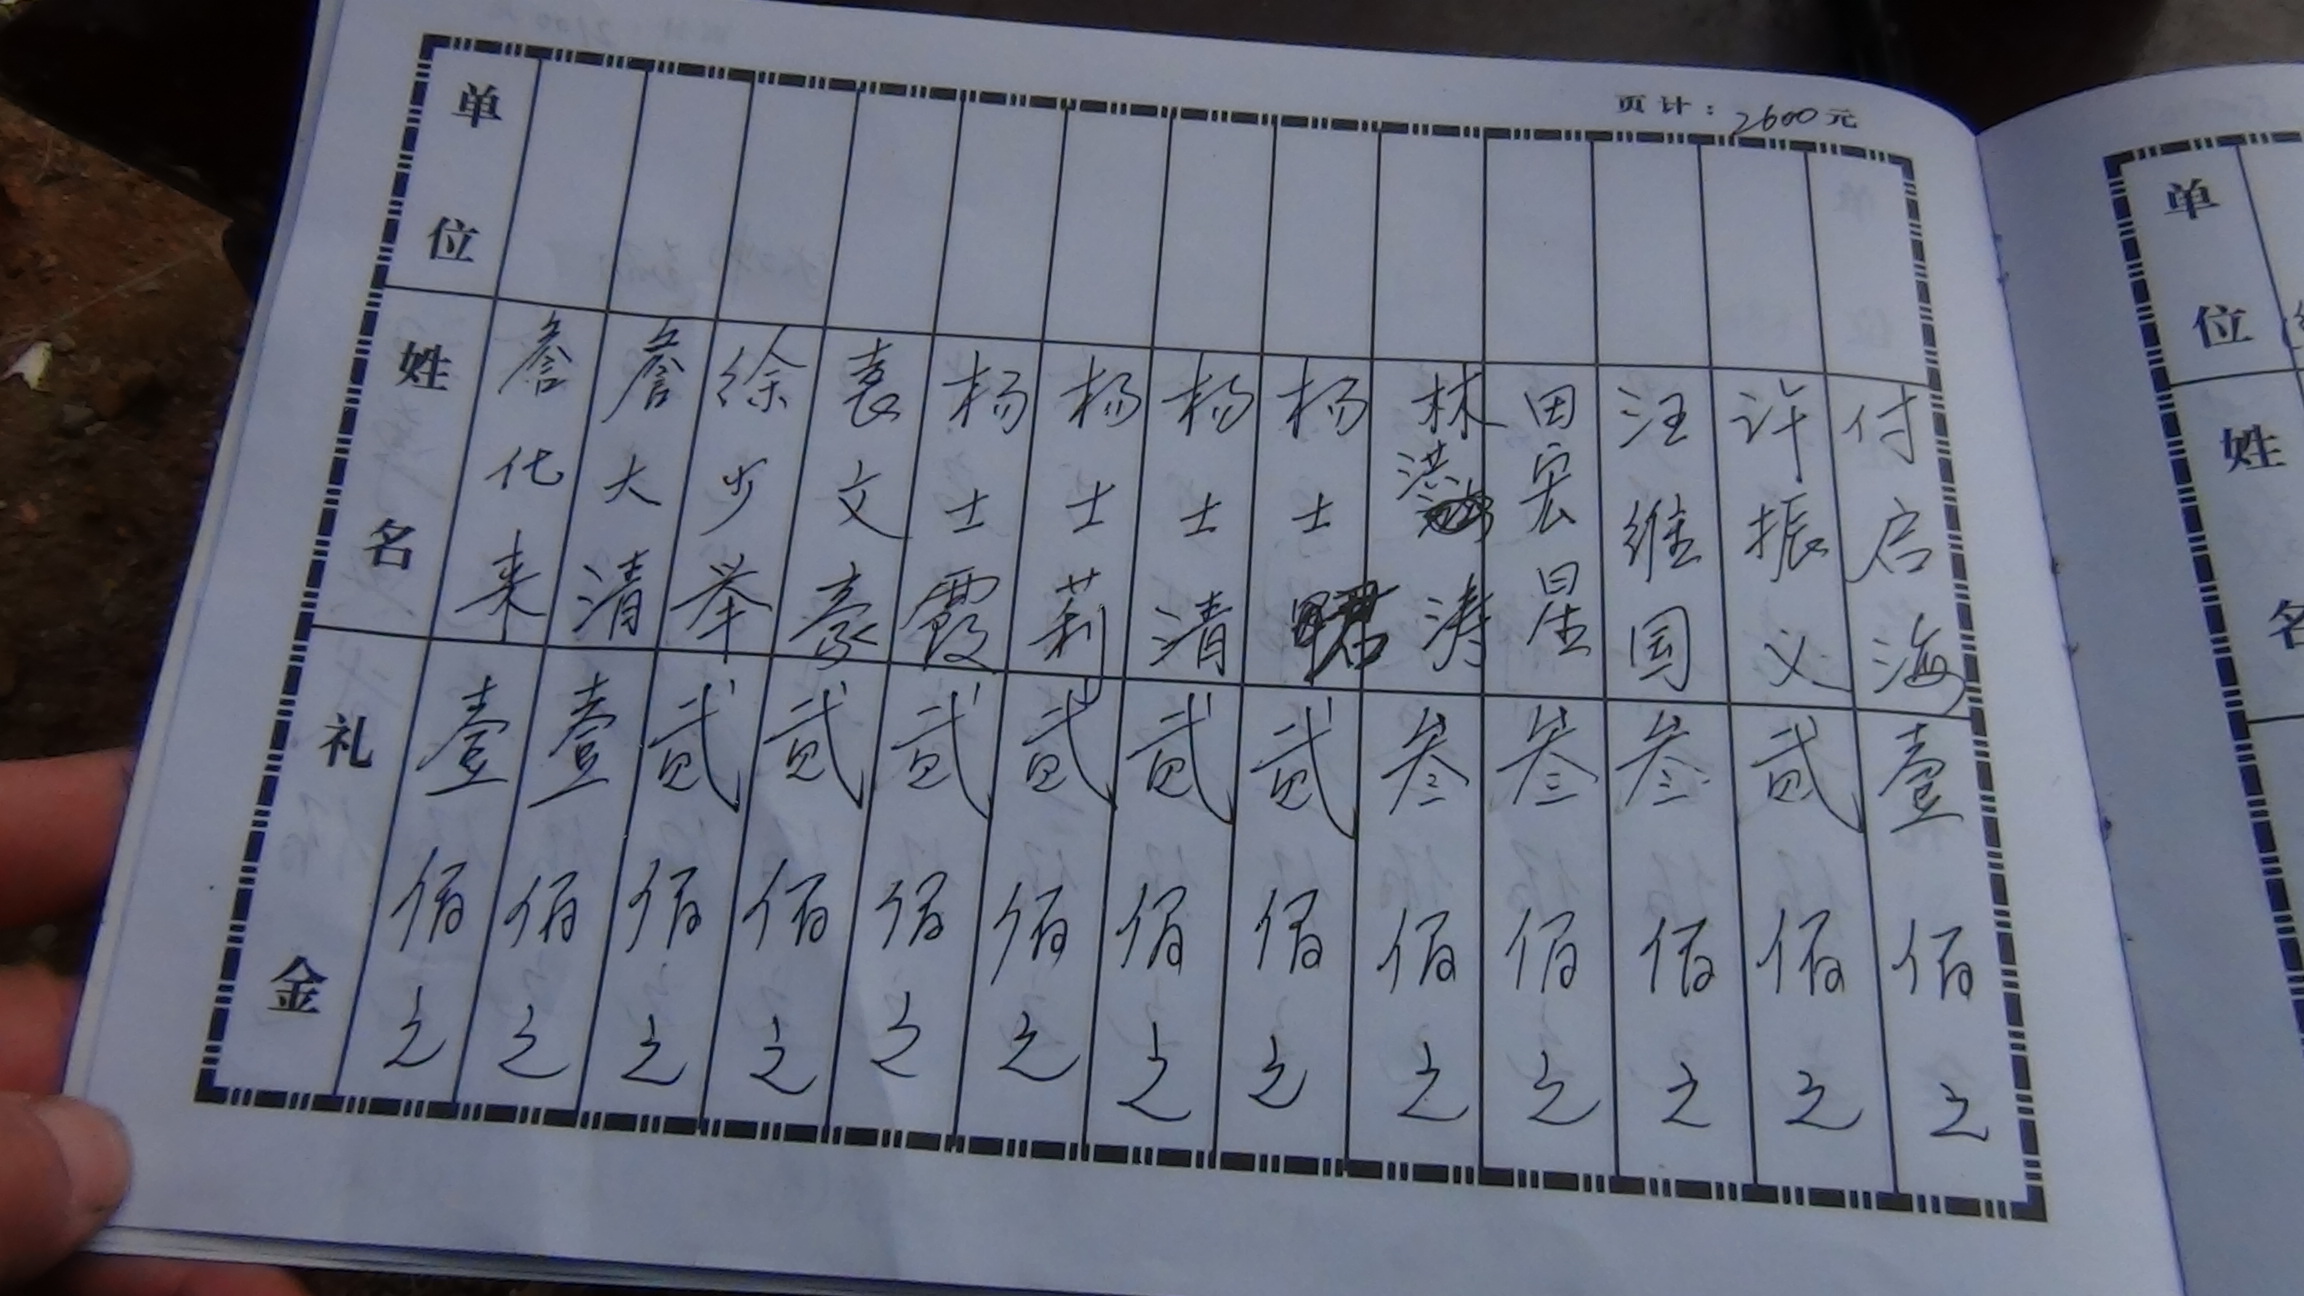 页计：2600元
单位
姓名
礼金
詹化来 壹佰元
詹大清 壹佰元
徐少举 贰佰元
袁文豪 贰佰元
杨士霞 贰佰元
杨士莉 贰佰元
杨士清 贰佰元
杨士 贰佰元
林洪涛 叁佰元
田宏星 叁佰元
汪维国 叁佰元
许振义 贰佰元
付启海 壹佰元
单位
姓名